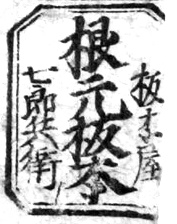 板木屋
根元板本
七郎兵衛